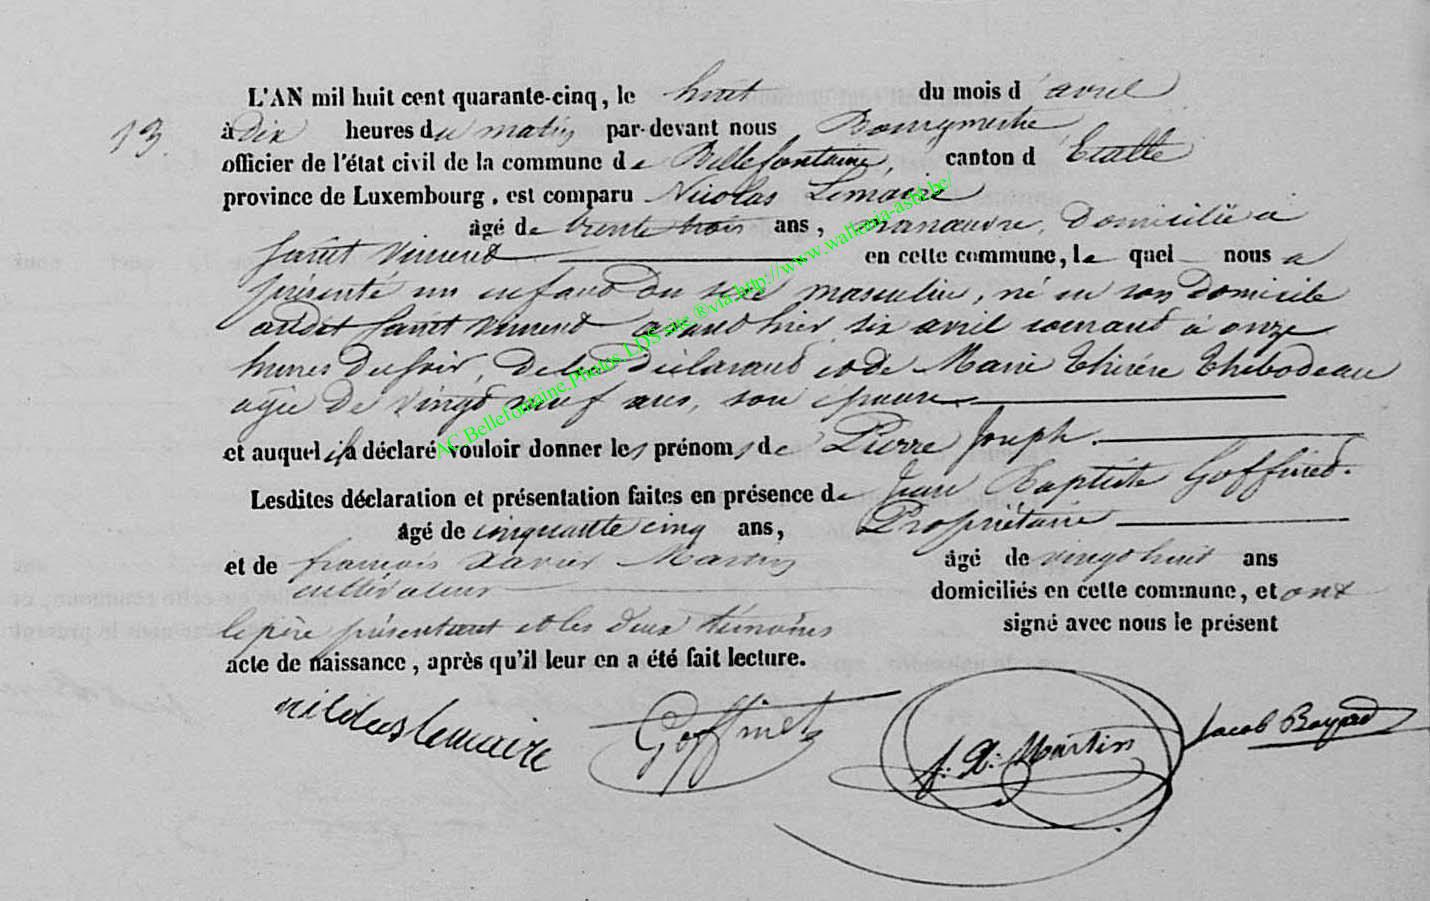 L'AN mil huit cent quarante-cinq, le huit du mois d'avril
13 à dix heures du matin par-devant nous Bourgmestre
officier de l'état civil de la commune de Bellefontaine, canton d'Etalle
province de Luxembourg, est comparu Nicolas Lemaire
âgé de trente trois ans, manoeuvre, domicilié a
Saint Vincent en cette commune, le quel nous a
présenté un enfant du sexe masculin, né en son domicile
audit Saint Vincent avant hier six avril courant à onze
heures du soir, de lui déclarant et de Marie Thérèse Thebodeau
agée de vingt neuf ans, son épouse
et auquel il a déclaré vouloir donner les prénoms de Pierre Joseph.
Lesdites déclaration et présentation faites en présence de Jean Baptiste Goffinet.
âgé de cinquante cinq ans, Propriétaire
et de françois Xavier Martin âgé de vingt huit ans
cultivateur domiciliés en cette commune, et ont
le père présentant et les deux témoins signé avec nous le présent
acte de naissance, après qu'il leur en a été fait lecture.
nicolas lemaire Goffinet f. X. Martin Jacob Bayard
AC Bellefontaine.Photos LDS site ®via.http://www.wallonia-asbl.be/